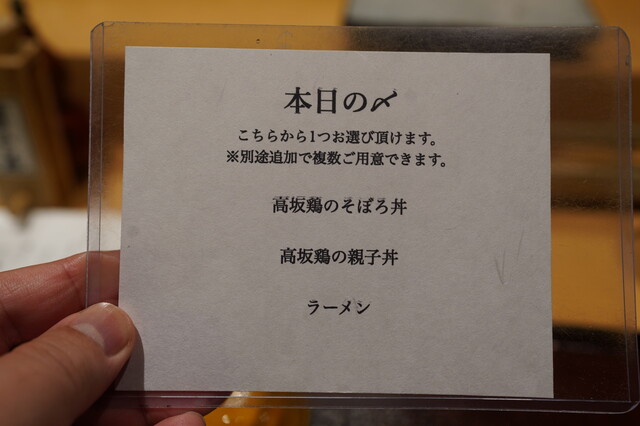 本日の〆
こちらから1つお選び頂けます。
※別途追加で複数ご用意できます。
高坂鶏のそぼろ丼
高坂鶏の親子丼
ラーメン